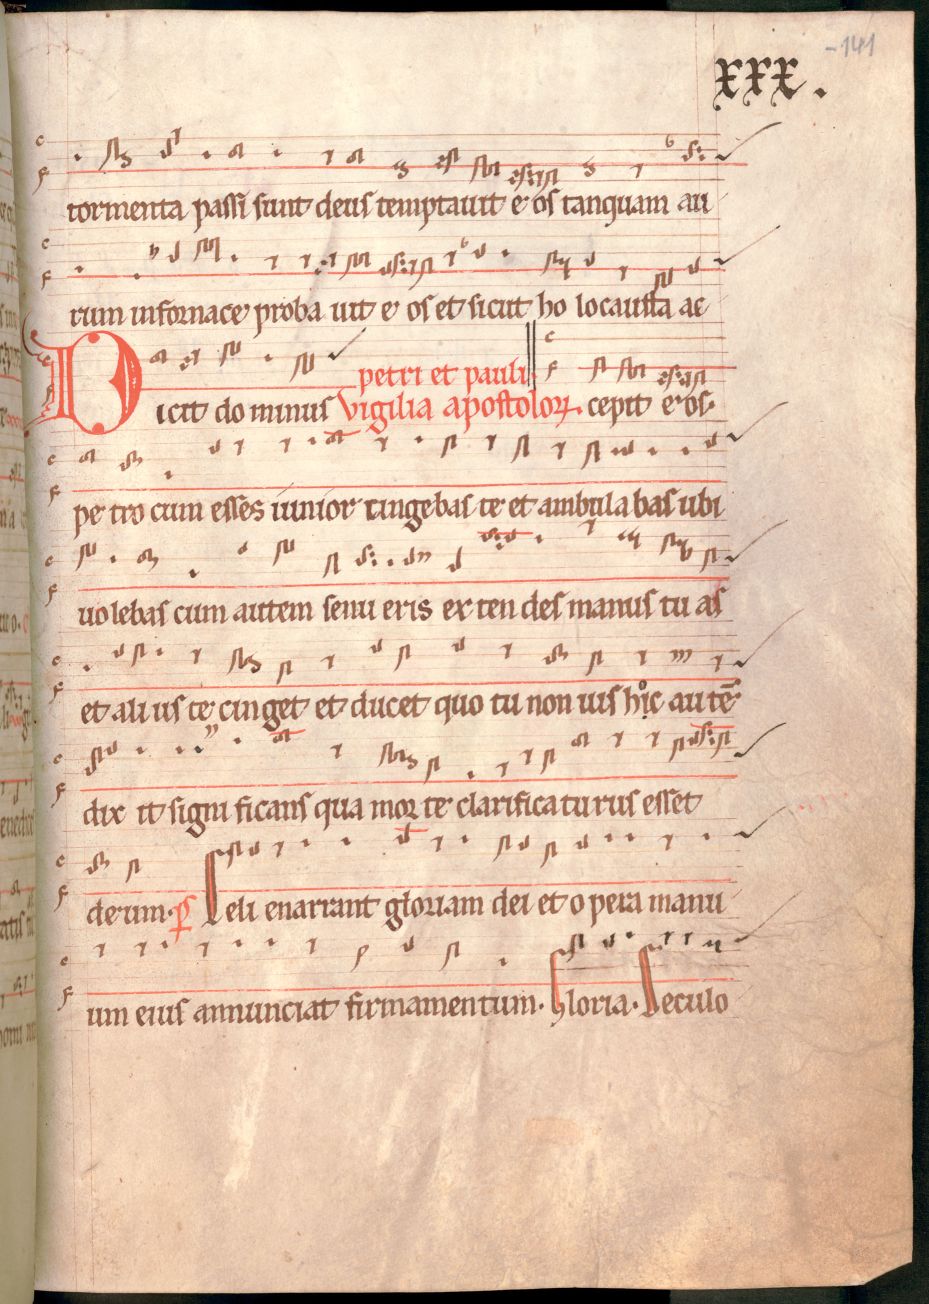 -141
xxx.
tormenta passi sunt deus temptauit e os tanquam au
rum infornace proba uit e os et sicut ho locausta ac
petri et pauli
Dicit do minus vigilia apostoloꝝ. cepit e os.
pe tro cum esses iunior cingebas te et ambula bas ubi
uo lebas cum autem senu eris ex ten des manus tu as
et ali us te cin get et ducet quo tu non uis hͦic au tē
dix it signi ficans qua moꝛ te clarifica tu rus esset
deum. p̄s Celi enarrant gloriam dei et o pera manu
um eius annunciat firmamentum. Gloria. Seculo